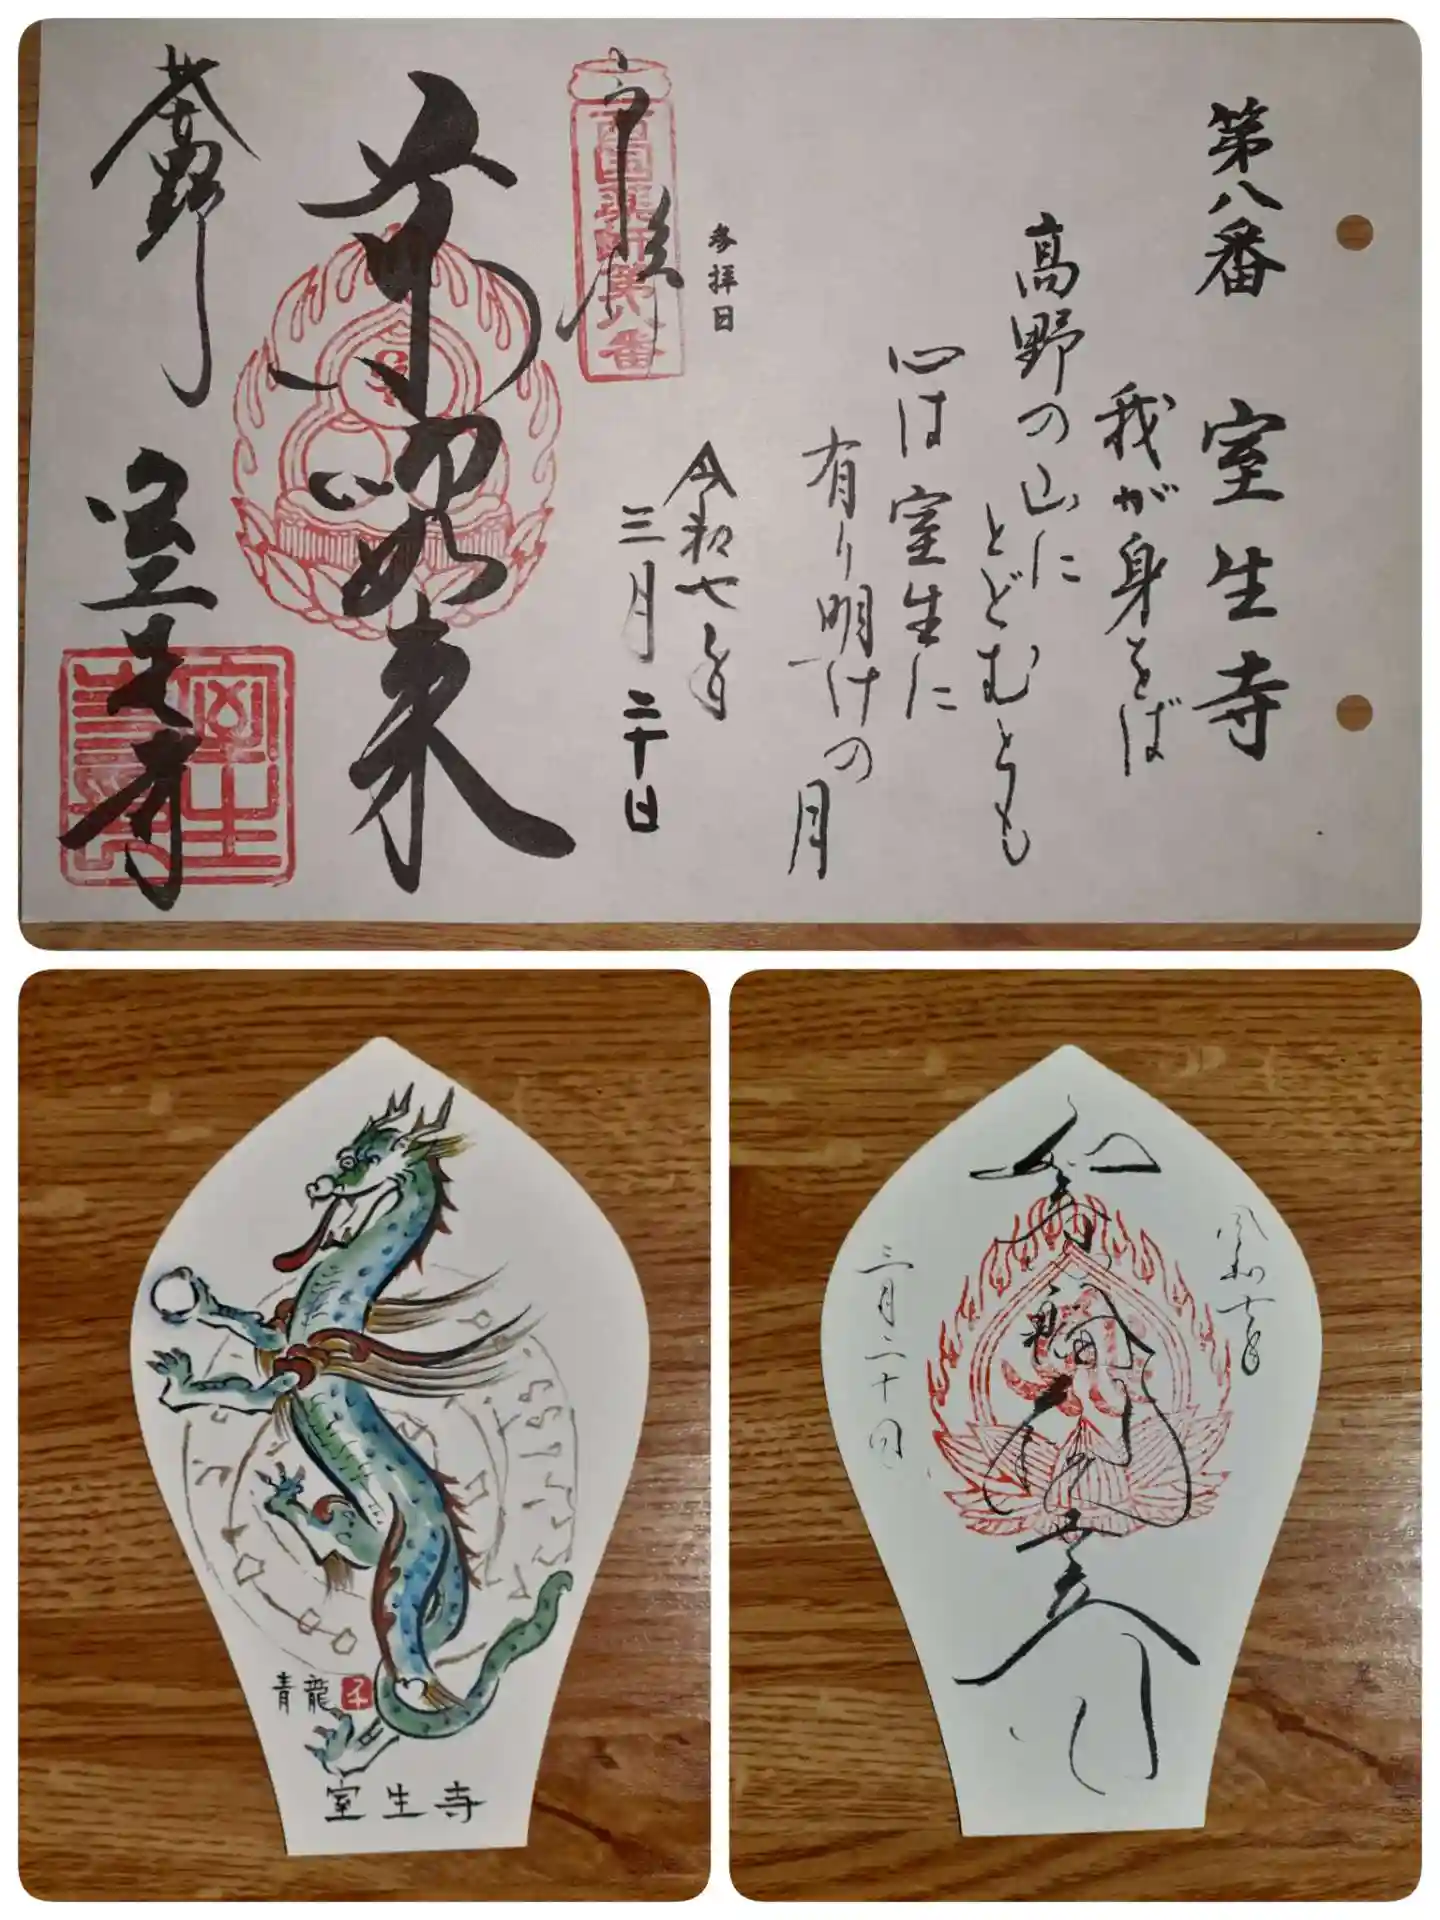 第八番 室生寺
我が身をば
高野の山に
とどむとも
心は室生に
有り明けの月
参拝日
令和七年
三月二十日
奉拝
西国薬師第八番
薬師如来
女人高野
室生寺
青龍
室生寺
令和七年
如意輪観世音
三月二十日